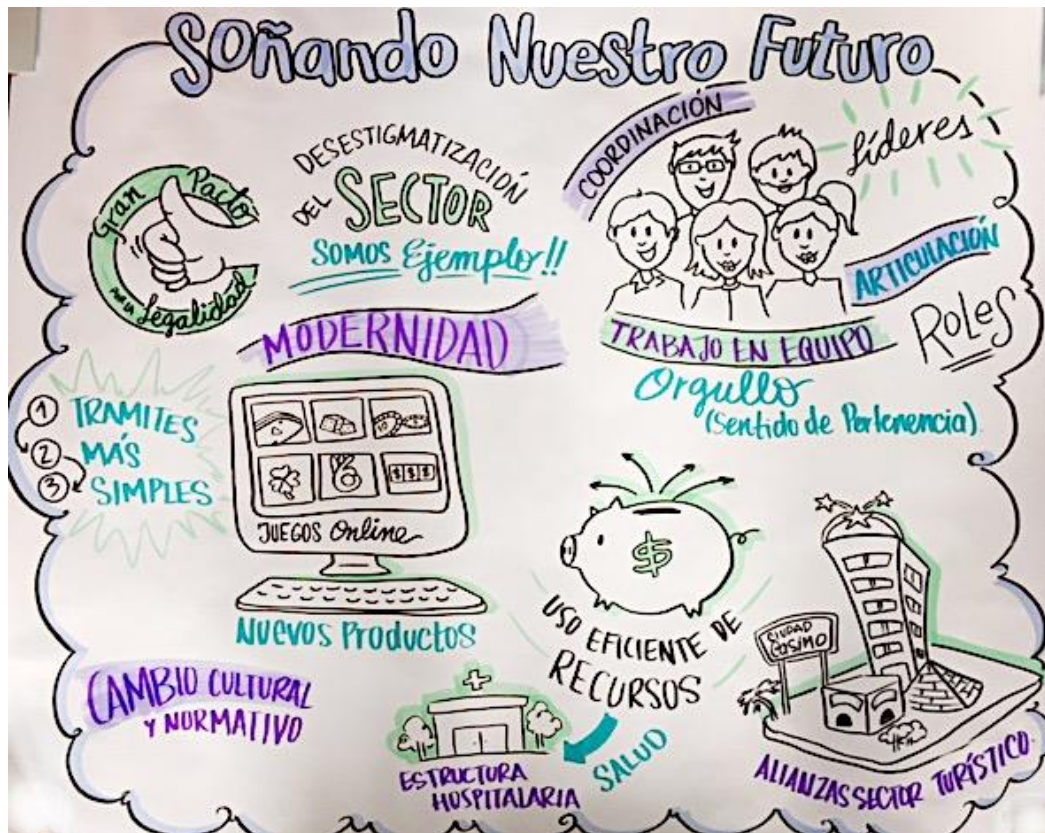 Soñando Nuestro Futuro
Gran Pacto
por la
Legalidad
DESESTIGMATIZACIÓN
DEL SECTOR
SOMOS Ejemplo!!
COORDINACIÓN
Líderes
ARTICULACIÓN
TRABAJO EN EQUIPO
Roles
Orgullo
(Sentido de Pertenencia)
MODERNIDAD
1 TRAMITES
2 MÁS
3 SIMPLES
10
$$$
JUEGOS Online
NUEVOS PRODUCTOS
$
USO EFICIENTE DE
RECURSOS
SALUD
ESTRUCTURA
HOSPITALARIA
CAMBIO CULTURAL
Y NORMATIVO
CIUDAD
ALIANZAS SECTOR TURÍSTICO.